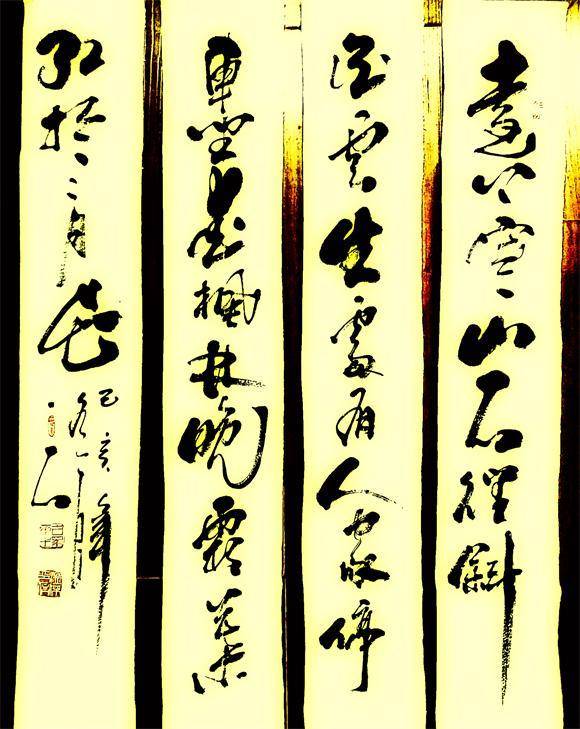 遠上寒山石徑斜
白雲生處有人家停
車坐愛楓林晚霜葉
紅於二月花
己亥年